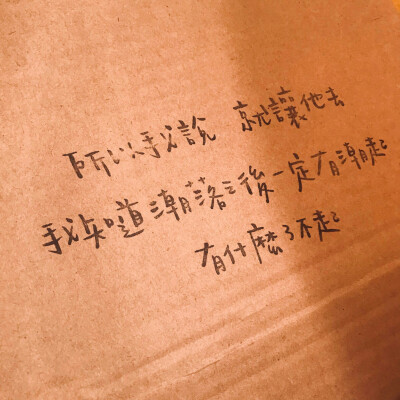 所以我說 就讓他去
我知道潮落之後一定有潮起
有什麼了不起